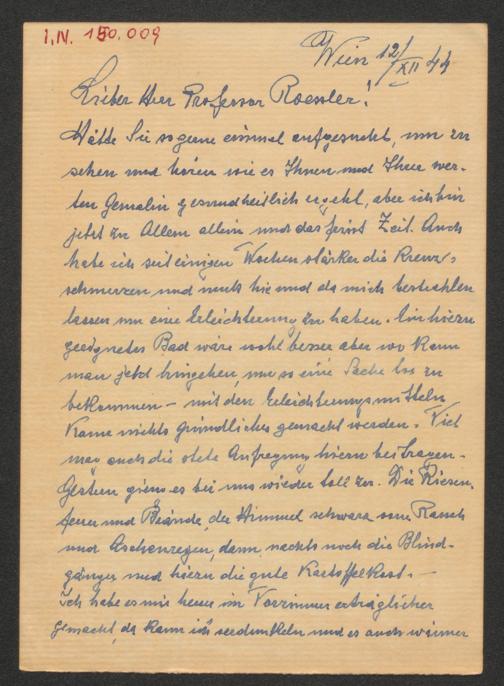 I.N. 150.009
Wien 12/XII 44
Lieber Herr Professor Roessler!
Hätte Sie so gerne einmal aufgesucht, um zu
sehen und hören wie es Ihnen und Ihrer wer-
ten Gemalin gesundheitlich ergeht, aber ich bin
jetzt zu Allem allein und das frist Zeit. Auch
habe ich seit einigen Wochen stärker die Kreuz-
schmerzen und muss hie und da mich bestrahlen
lassen um eine Erleichterung zu haben. Ein hiezu
geeignetes Bad wäre wohl besser aber wo kann
man jetzt hingehen, um so eine Sache los zu
bekommen – mit den Erleichterungsmitteln
kann nichts gründliches gemacht werden. Viel
mag auch die stete Aufregung hiezu beitragen.
Gestern gieng es bei uns wieder toll zu. Die Riesen-
feuer und Brände, der Himmel schwarz von Rauch
und Aschenregen, dann nachts noch die Blind-
gänger und hiezu die gute Kartoffelkost. –
Ich habe es mir heuer im Vorzimmer erträglicher
gemacht, da kann ich verdunkeln und es auch wärmer